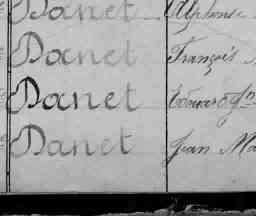 Danet Alphonse
Danet François
Danet Edouard
Danet Jean Ma